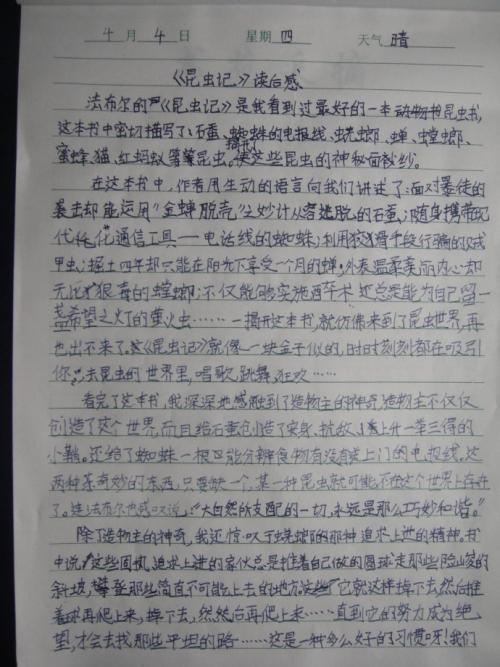 4月4日 星期四 天气晴
《昆虫记》读后感
法布尔的《昆虫记》是我看到过最好的一本动物书昆虫书,
这本书中密切描写了、石蚕、蜘蛛的电报线、蜣螂、蝉、螳螂、
蜜蜂、猫、红蚂蚁等等昆虫。使这些昆虫的神秘面纱。
在这本书中,作者用生动的语言向我们讲述了:面对暴徒的
袭击却能运用“金蝉脱壳”之妙计从容逃脱的石蚕;随身携带现
代化通信工具——电话线的蜘蛛;利用狡猾手段行骗的
甲虫;掘土四年却只能在阳光下享受一个月的蝉,外表温柔美丽内心却
无比狠毒的螳螂;不仅能够实施麻醉术还总是能为自己留一
盏希望之灯的萤火虫……一揭开这本书,就仿佛来到了昆虫世界,再
也出不来了。这《昆虫记》就像一块金子似的,时时刻刻都在吸引
你,去昆虫的世界里,唱歌,跳舞,狂欢……
看完了这本书,我深深地感触到了造物主的神奇,造物主不仅仅
创造了这个世界,而且给石蚕创造了家身、抗敌、上升一举三得的
小鞘。还给了蜘蛛一根能分辨食物有没有送上门的电报线,这
两种莫奇妙的东西,只要缺一个,某一种昆虫就可能不在这个世界上存在
了。连法布尔也感叹说,“大自然所支配的一切,永远是那么巧妙和谐。”
除了造物主的神奇,我还惊叹于蜣螂的那种追求上进的精神。书
中说:“这些固执追求上进的家伙总是推着自己做的圆球走那些险峻的
斜坡,攀登那些简直不可能上去的地方 它就这样掉下去然后推
着球再爬上来,掉下去,然然后再爬上来……直到它的努力成为绝
望,才会去找那些平坦的路……这是一种多么好的习惯呀!我们